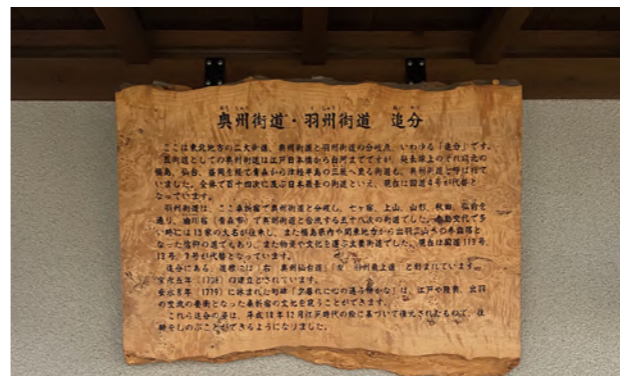 おうしゅう うしゅう おいわけ
奥州街道・羽州街道 追分
ここは東北地方の二大街道、奥州街道と羽州街道の分岐点、いわゆる「追分」です。
五街道としての奥州街道は江戸日本橋から白河までですが、延長線上のそれ以北の
福島、仙台、盛岡を経て青森から津軽半島の三厩へ至る街道も、奥州街道と呼ばれて
いました。全体で百十四次に及ぶ日本最長の街道といえ、現在は国道4号が代替と
なっています。
羽州街道は、ここ桑折宿で奥州街道と分岐し、七ヶ宿、上山、山形、秋田、弘前を
通り、油川宿(青森市)で奥州街道と合流する五十八次の街道でした。参勤交代で多
い時には13家の大名が往来し、また福島県内や関東地方から出羽三山への参詣路と
なった信仰の道でもあり、また物資や文化を運ぶ主要街道でした。現在は国道113号、
13号、7号が代替となっています。
追分にある、道標には「右 奥州仙台道」「左 羽州最上道」と刻まれています。
の建立とされています。
安永8年(1779)に詠まれた句碑「夕暮れに心の通う柳かな」は、江戸や陸奥、出羽
の交流の要衝となった桑折宿の文化を窺うことができます。
これら追分の姿は、平成18年12月江戸時代の絵に基づいて復元されたもので、往
時をしのぶことができるようになりました。